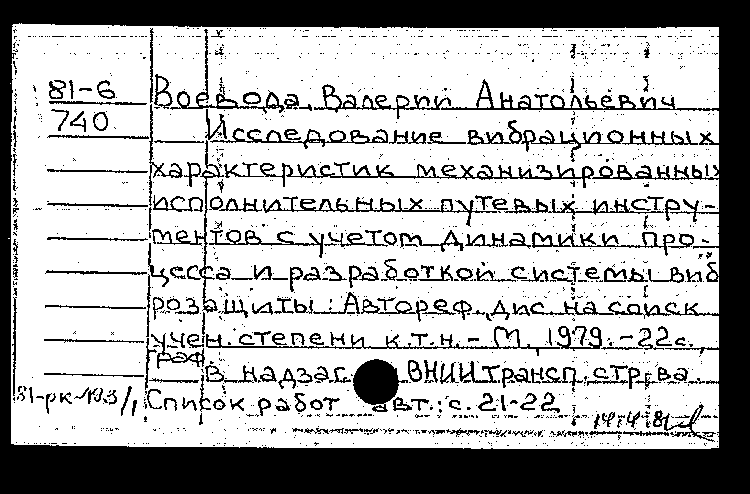 81-6 Воевода, Валерий Анатольевич
740 Исследование вибрационных
характеристик механизированных
исполнительных путевых инстру-
ментов с учетом динамики про-
цесса и разработкой системы виб
розащиты: Автореф. дис. на соиск
учен. степени к.т.н. - М., 1979. - 22с.,
граф
В надзаг. ВНИИ трансп. стр-ва.
Список работ авт.: с. 21-22
14.4.81